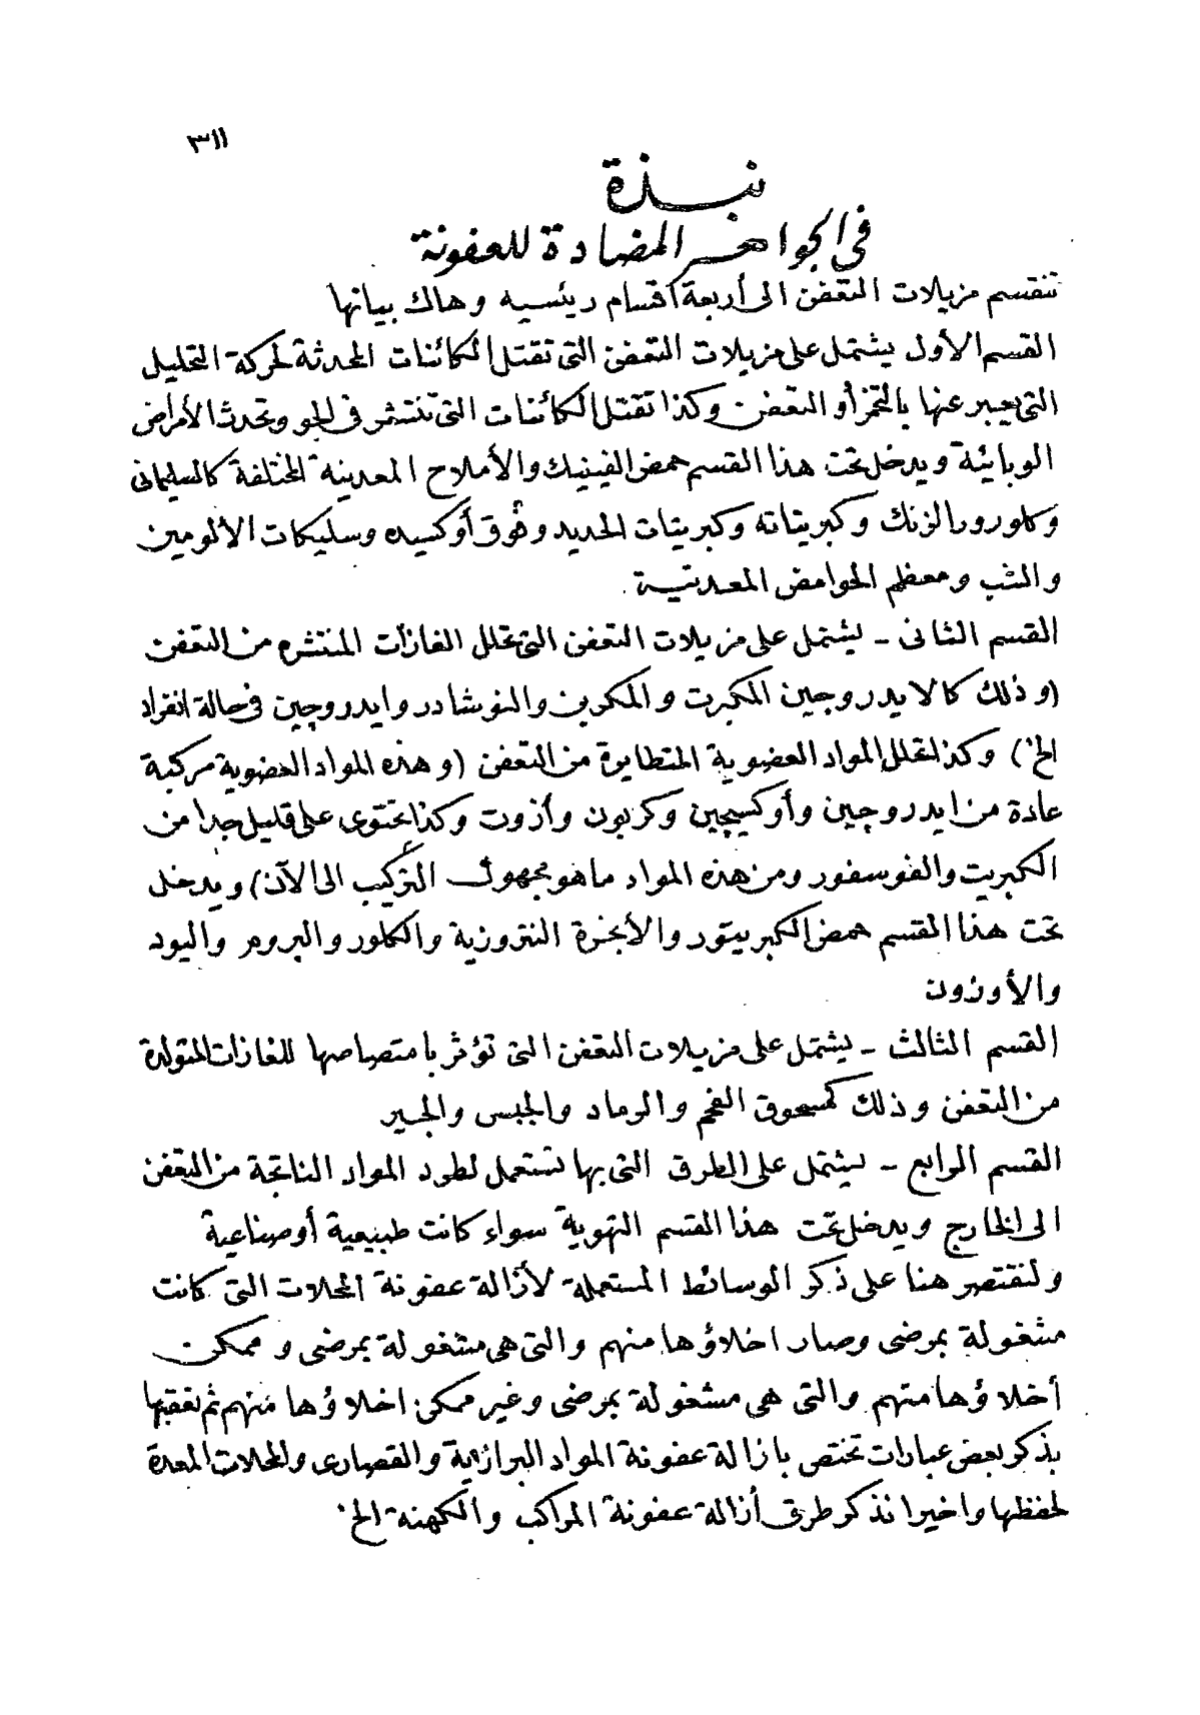 ٣١١
نبذة
فى الجواهر المضادة للعفونة
تنقسم مزيلات التعفن الى أربعة أقسام رئيسيه وهاك بيانها
القسم الأول يشتمل على مزيلات التعفن التى تقتل الكائنات المحدثة لحركة التحليل
التى يعبر عنها بالتخمر أو التعفن وكذا تقتل الكائنات التى تنتشر فى الجو وتحدث الأمراض
الوبائية ويدخل تحت هذا القسم حمض الفينيك والأملاح المعدنية المختلفة كالسليمانى
وكلورور الزنك وكبريتاته وكبريتات الحديد وفوق أوكسيده وسليكات الألومين
والشب ومعظم الحوامض المعدنية .
القسم الثانى - يشتمل على مزيلات التعفن التى تحلل الغازات المنتشره من التعفن
(وذلك كالايدروجين المكبرت والمكربن والنوشادر وايدروچين فى حالة انفراد
الخ) وكذا تحلل المواد العضوية المتطايرة من التعفن (وهذه المواد العضوية مركبة
عادة من ايدروچين وأوكسيچين وكربون وأزوت وكذا يحتوى على قليل جدا من
الكبريت والفوسفور ومن هذه المواد ما هو مجهول التركيب الى الآن) ويدخل
تحت هذا القسم حمض الكبريتور والأبخرة النتروزية والكلور والبروم واليود
والأوزون
القسم الثالث - يشتمل على مزيلات التعفن التى تؤثر بامتصاصها للغازات المتولدة
من التعفن وذلك كمسحوق الفحم والرماد والجبس والجير
القسم الرابع - يشتمل على الطرق التى بها تستعمل لطرد المواد الناتجة من التعفن
الى الخارج ويدخل تحت هذا القسم التهوية سواء كانت طبيعية أو صناعية
ولنقتصر هنا على ذكر الوسائط المستعملة لأزالة عفونة المحلات التى كانت
مشغولة بمرضى وصار اخلاؤها منهم والتى هى مشغولة بمرضى وممكن
أخلاؤها منهم والتى هى مشغولة بمرضى وغير ممكن اخلاؤها منهم ثم نعقبها
بذكر بعض عبارات تختص بازالة عفونة المواد البرازية والقصارى والمحلات المعدة
لحفظها واخيرا نذكر طرق أزالة عفونة المراكب والكهنة الخ